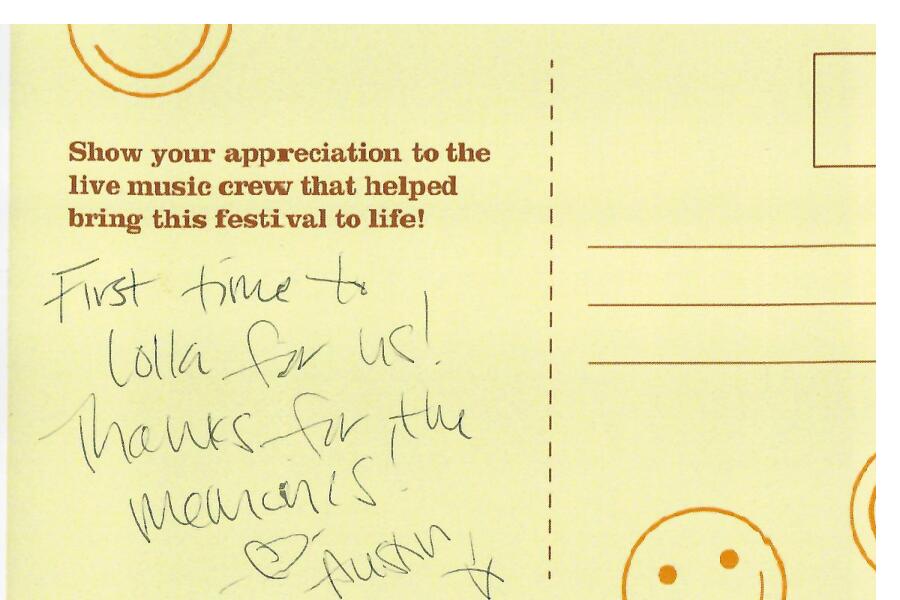 Show your appreciation to the
live music crew that helped
bring this festival to life!
First time to
Lolla for us!
Thanks for the
memories!
♡ Austin